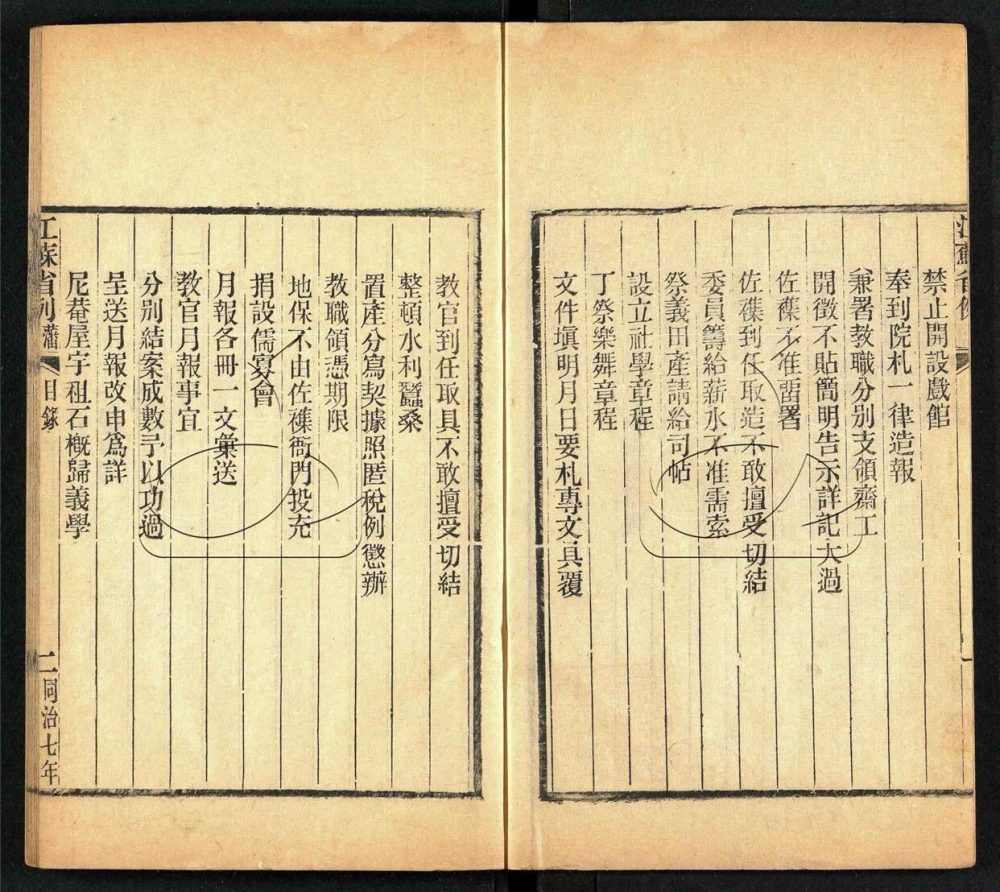 江蘇省例
禁止開設戲館
奉到院札一律造報
兼署教職分別支領齋工
開徵不貼簡明告示詳記大過
佐襍不准畱署
佐襍到任取造不敢擅受切結
委員籌給薪水不准需索
祭義田產請給司帖
設立社學章程
丁祭樂舞章程
文件塡明月日要札專文具覆
教官到任取具不敢擅受切結
整頓水利蠶桑
置產分寫契據照匿稅例懲辦
教職領憑期限
地保不由佐襍衙門投充
捐設儒寡會
月報各冊一文彙送
教官月報事宜
分別結案成數予以功過
呈送月報改申爲詳
尼菴屋宇租石槪歸義學
江蘇省例藩 目錄 二 同治七年